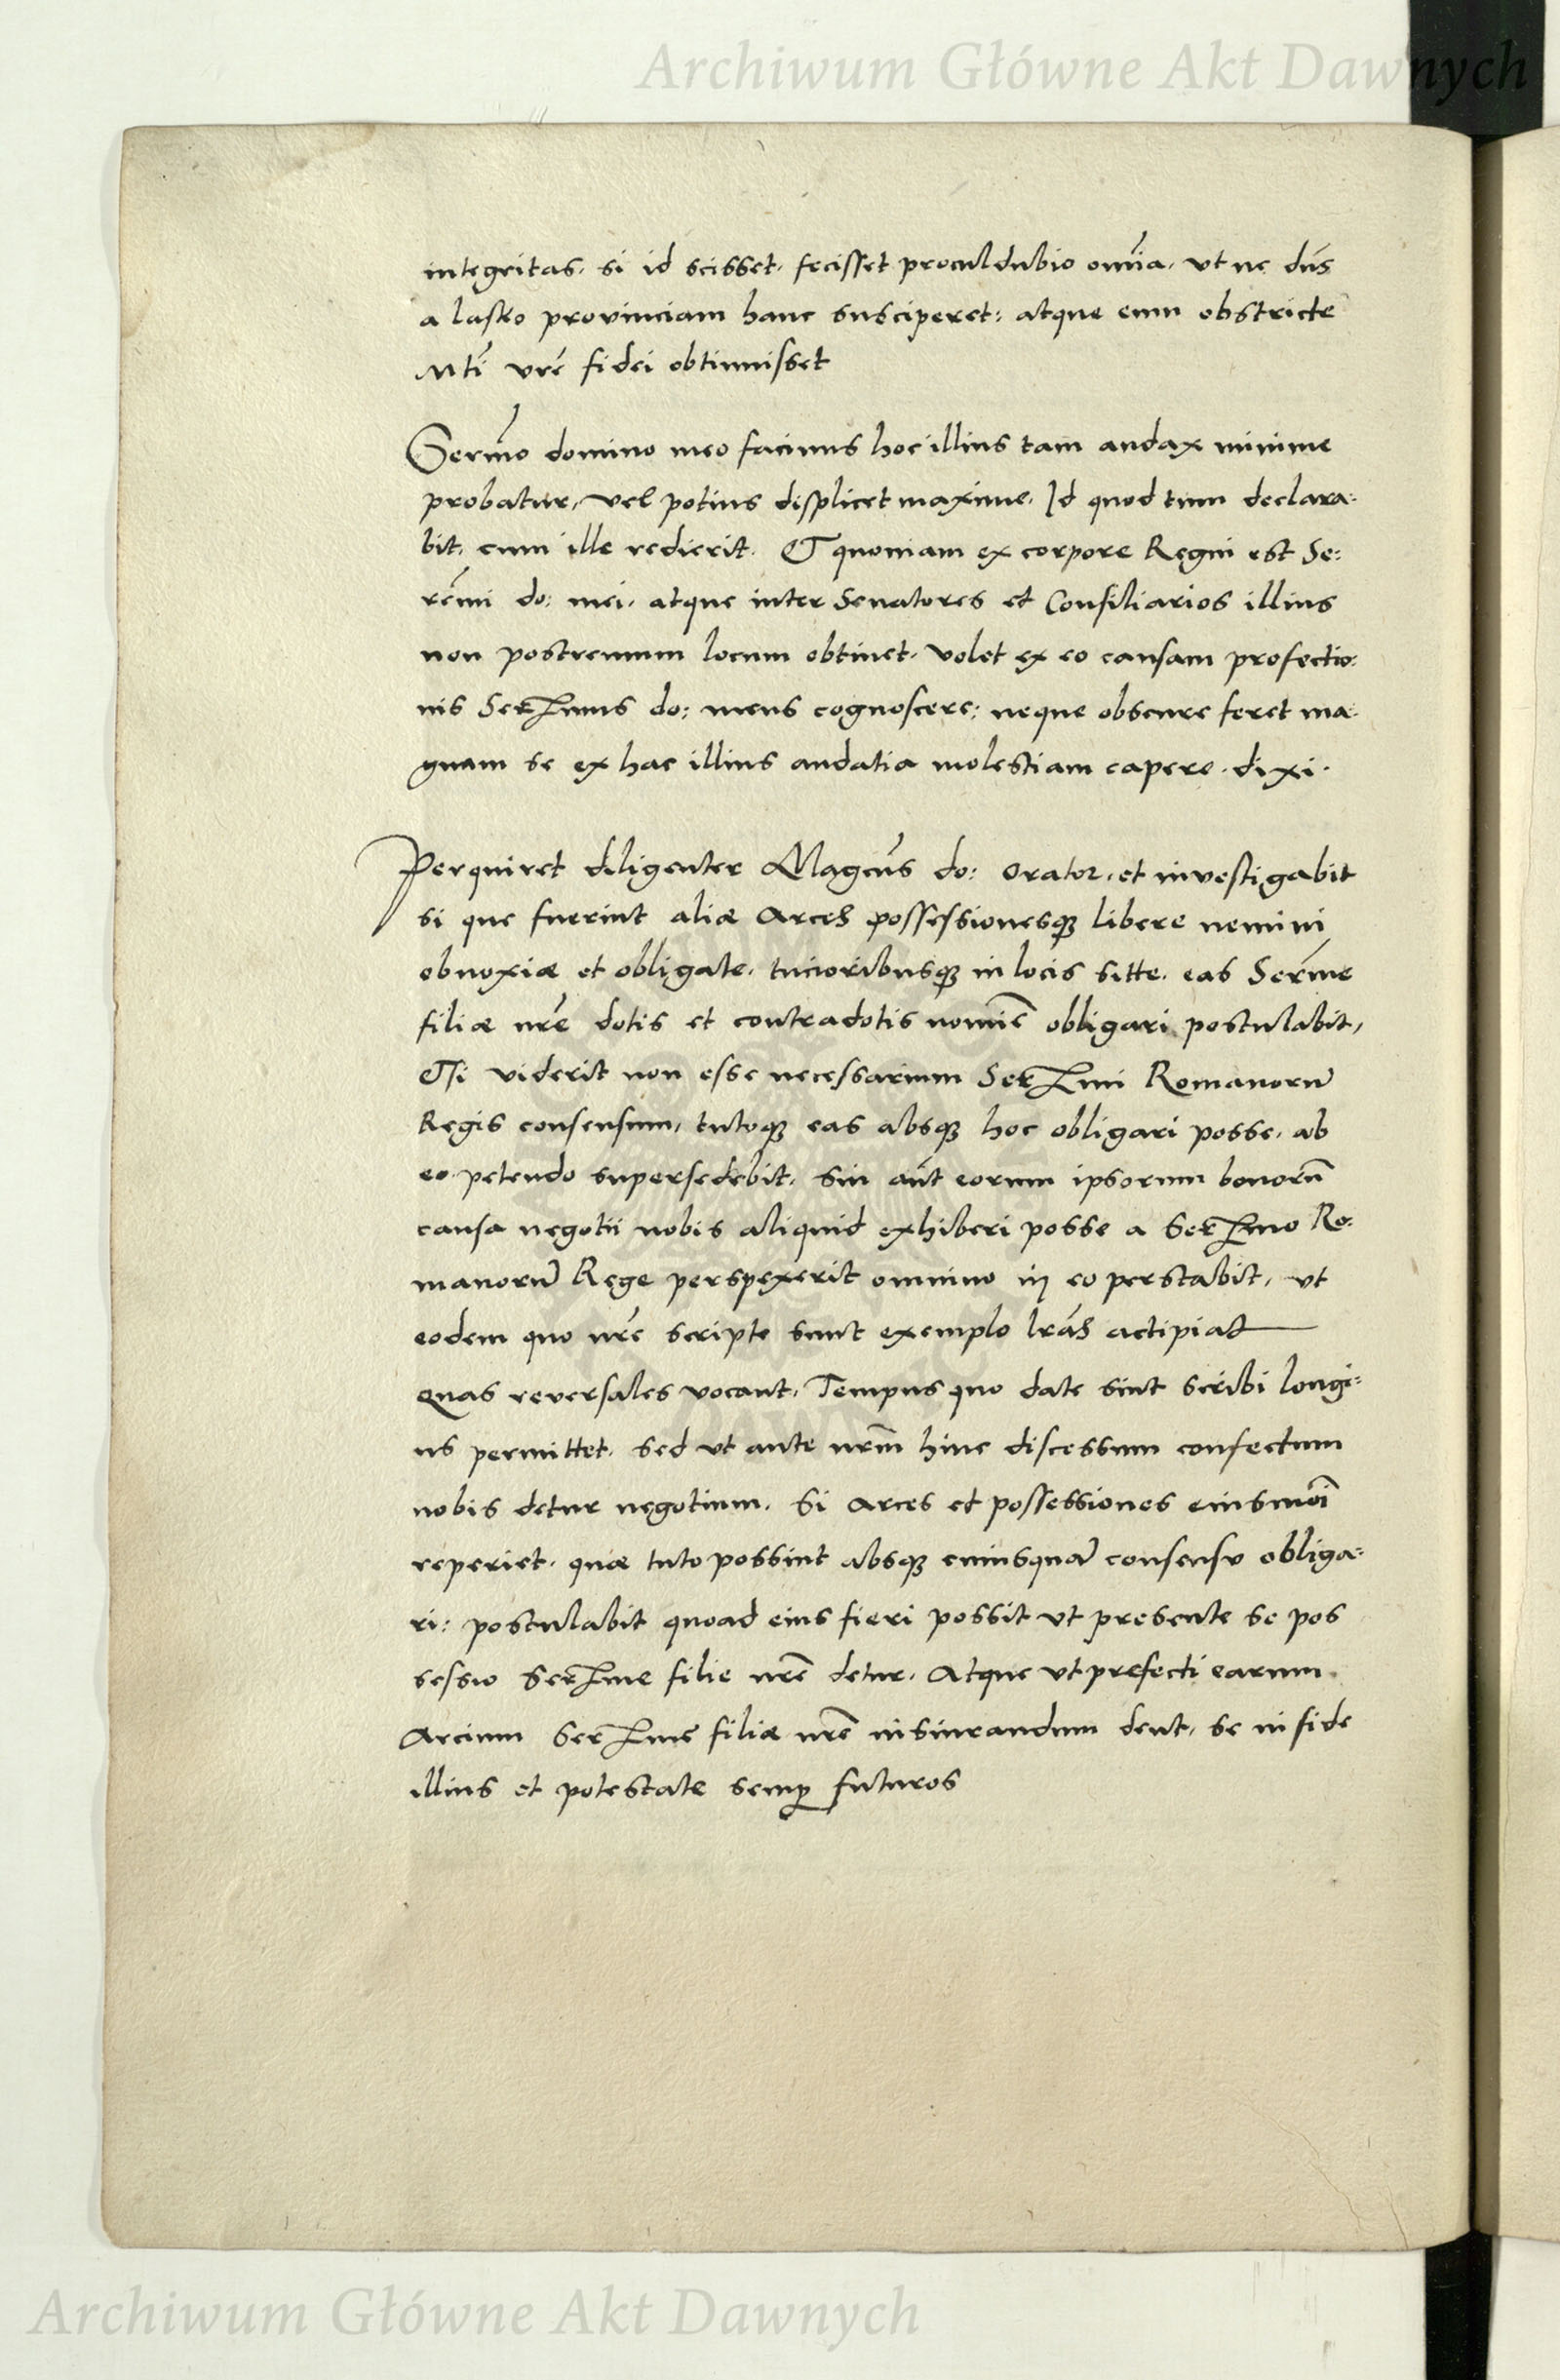 Archiwum Główne Akt Dawnych
integritas. si id scisset. fecisset proculdubio om̃ia. vt ne dñs
a lasko provinciam hanc susciperet: atque eum obstricte
Mti vrẽ fidei obtinuisset
Serm̃o domino meo facinus hoc illius tam audax minime
probatur, vel potius displicet maxime. Id quod tum declara:
bit, cum ille redierit. Et quoniam ex corpore Regni est Se:
rẽmi do: mei. atque inter Senatores et Consiliarios illius
non postremum locum obtinet. volet ex eo causam profectio:
nis Serẽmus do: meus cognoscere: neque obscure feret ma:
gnam se ex hac illius audatia molestiam capere. dixi.
Perquiret diligenter Magcus do: Orator. et investigabit
si que fuerint aliæ Arces possessionesqꝫ libere nemini
obnoxiæ et obligate. tucioribusqꝫ in locis sitte. eas Serm̃e
filiæ nrẽ dotis et contradotis nomiẽ obligari postulabit,
Et si viderit non esse necessarium Serẽmi Romanorũ
Regis consensum, tutoqꝫ eas absqꝫ hoc obligari posse. ab
eo petendo supersedebit. sin aũt eorum ipsorum bonorũ
causa negotii nobis aliquid exhiberi posse a Serẽmo Ro:
manorũ Rege perspexerit omnino in eo perstabit, vt
eodem quo nrẽ scripte sunt exemplo lrãs actipiat
quas reversales vocant. Tempus quo date sint scribi longi:
us permittet. sed vt ante nrm̃ hinc discessum confectum
nobis detur negotium. Si Arces et possessiones eiusmõi
reperiet. quæ tuto possint absqꝫ cuiusquã consensu obliga:
ri: postulabit quoad eius fieri possit vt presente se pos
sessio Serẽme filie nrẽ detur. Atque vt prefecti earum
Arcium Serẽme filiæ nrẽ iusiurandum dent. se in fide
illius et potestate semꝑ futuros
Archiwum Główne Akt Dawnych